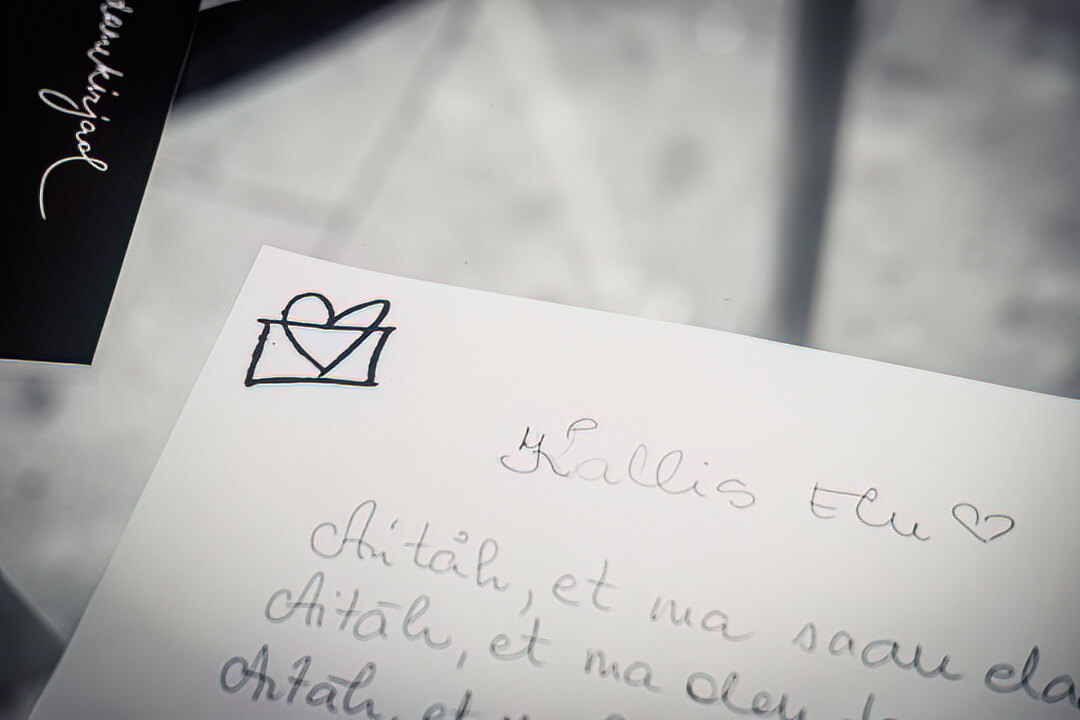 Kallis Elu ♡
Aitäh, et ma saan ela
Aitäh, et ma olen
Aitäh, et